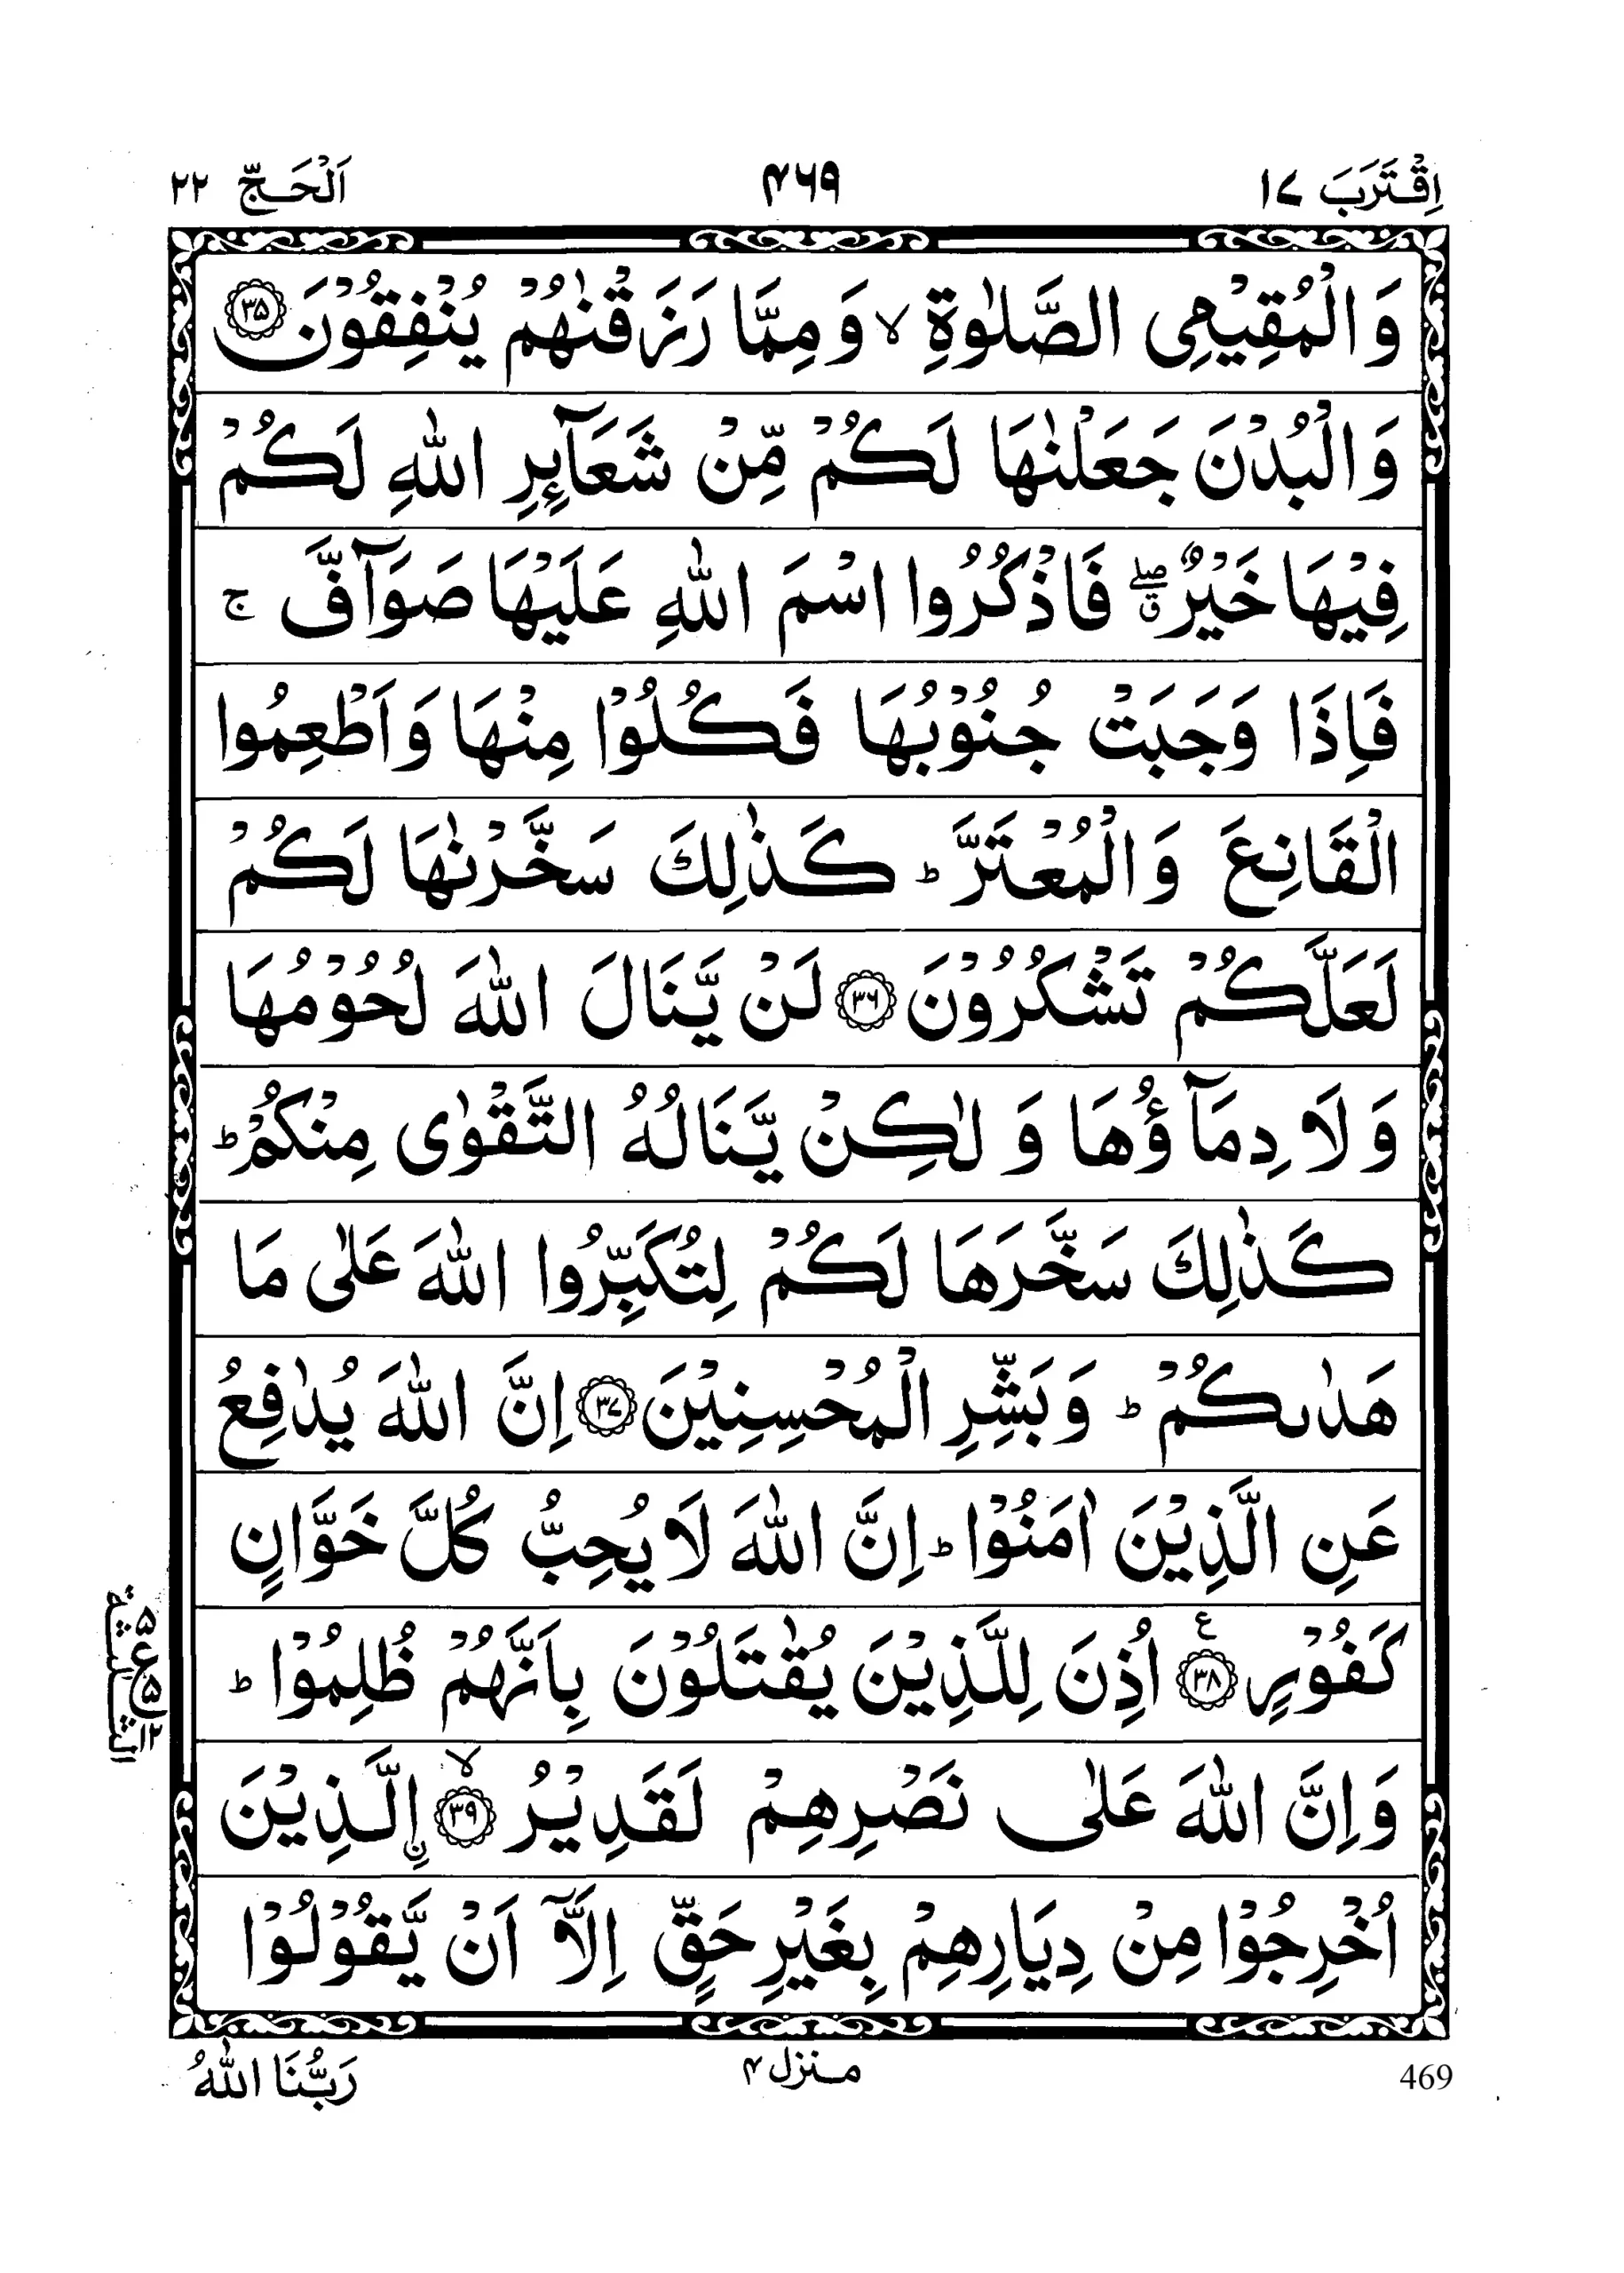 اِقْتَرَبَ ١٧ ۴۶۹ اَلْحَـجّ ٢٢
وَالْمُقِيْمِى الصَّلٰوةِ ۙ وَمِمَّا رَزَقْنٰهُمْ يُنْفِقُوْنَ ﴿۳۵﴾
وَالْبُدْنَ جَعَلْنٰهَا لَكُمْ مِّنْ شَعَآئِرِ اللّٰهِ لَكُمْ
فِيْهَا خَيْرٌ ۖۗ فَاذْكُرُوا اسْمَ اللّٰهِ عَلَيْهَا صَوَآفَّ ۚ
فَاِذَا وَجَبَتْ جُنُوْبُهَا فَكُلُوْا مِنْهَا وَاَطْعِمُوا
الْقَانِعَ وَالْمُعْتَرَّ ؕ كَذٰلِكَ سَخَّرْنٰهَا لَكُمْ
لَعَلَّكُمْ تَشْكُرُوْنَ ﴿۳۶﴾ لَنْ يَّنَالَ اللّٰهَ لُحُوْمُهَا
وَلَا دِمَآؤُهَا وَ لٰكِنْ يَّنَالُهُ التَّقْوٰى مِنْكُمْ ؕ
كَذٰلِكَ سَخَّرَهَا لَكُمْ لِتُكَبِّرُوا اللّٰهَ عَلٰى مَا
هَدٰىكُمْ ؕ وَبَشِّرِ الْمُحْسِنِيْنَ ﴿۳۷﴾ اِنَّ اللّٰهَ يُدٰفِعُ
عَنِ الَّذِيْنَ اٰمَنُوْا ؕ اِنَّ اللّٰهَ لَا يُحِبُّ كُلَّ خَوَّانٍ
كَفُوْرٍ ﴿۳۸﴾ ع اُذِنَ لِلَّذِيْنَ يُقٰتَلُوْنَ بِاَنَّهُمْ ظُلِمُوْا ؕ
وَاِنَّ اللّٰهَ عَلٰى نَصْرِهِمْ لَقَدِيْرُ ﴿۳۹﴾ ۙ اۨلَّذِيْنَ
اُخْرِجُوْا مِنْ دِيَارِهِمْ بِغَيْرِ حَقٍّ اِلَّآ اَنْ يَّقُوْلُوْا
رَبُّنَا اللّٰهُ
منزل ۴
469